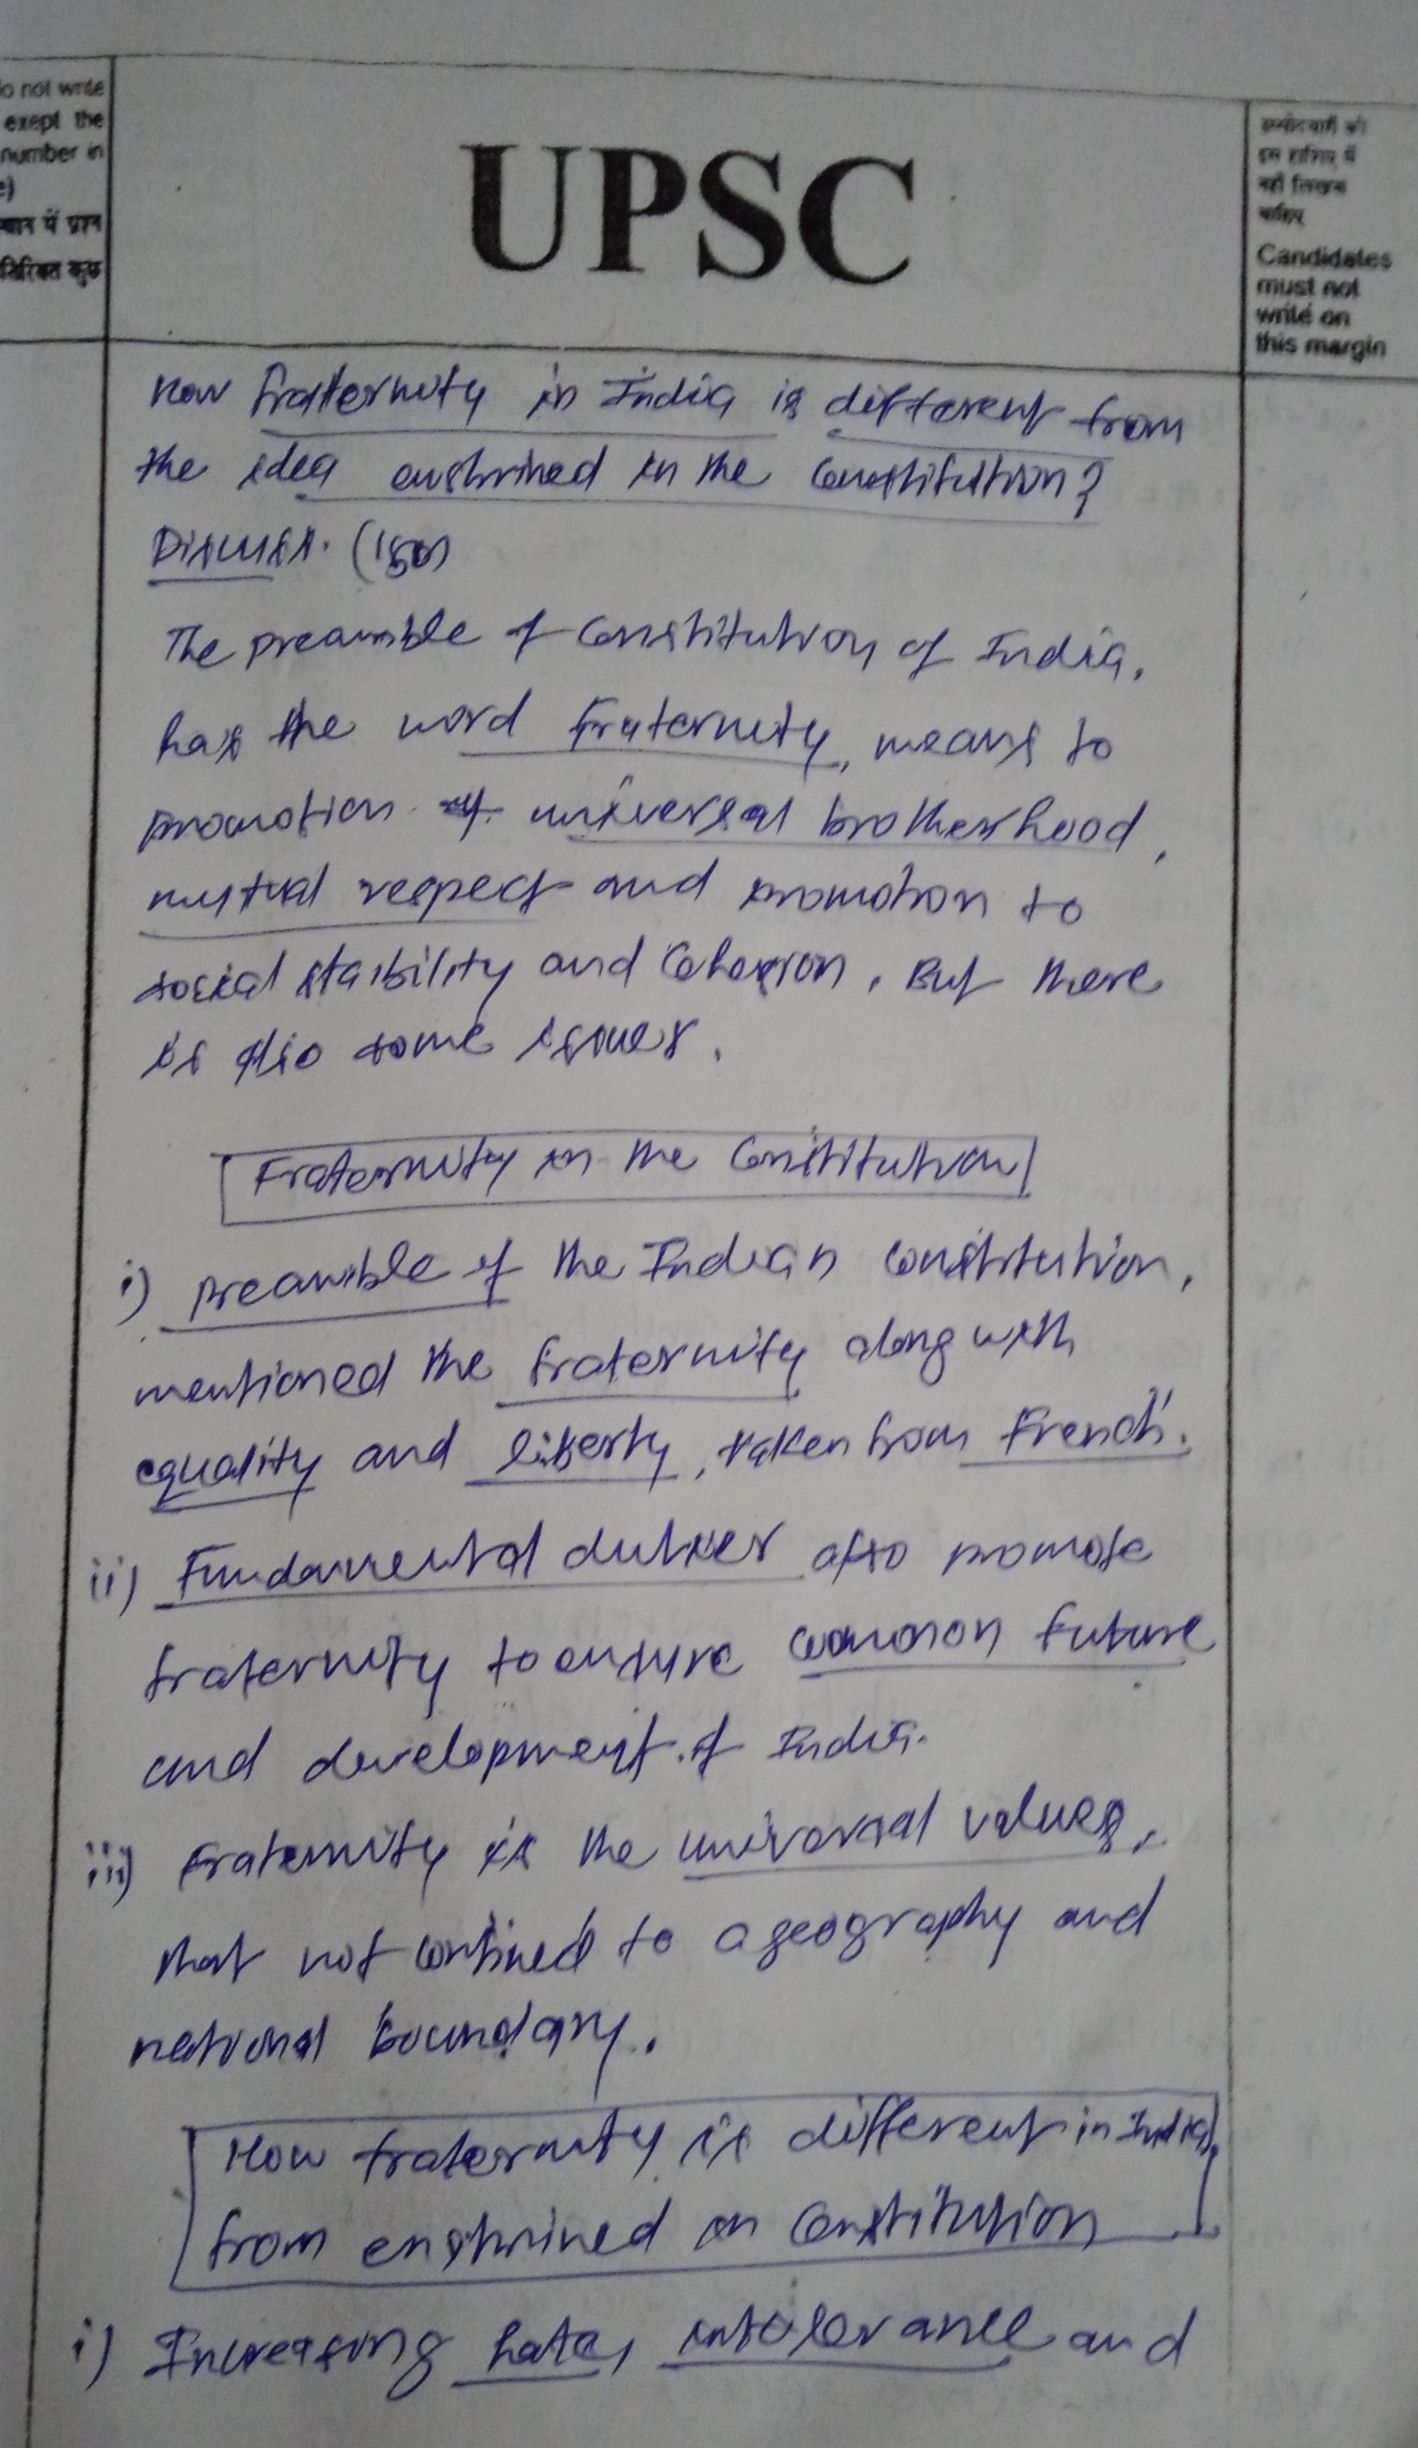 do not write
exept the
number in
e)
स्थान में प्रश्न
तिरिक्त कुछ
UPSC
उम्मीदवारों को
इस हाशिए में
नहीं लिखना
चाहिए
Candidates
must not
write on
this margin
How fratternity in India is different from
the idea enshrined in the Constitution?
Discuss. (150)
The preamble of Constitution of India,
has the word fraternity, means to
promotion of universal brotherhood,
mutual respect and promotion to
social stability and Cohesion. But there
is also some issues.
Fraternity in the Constitution
i) preamble of the Indian constitution,
mentioned the fraternity along with
equality and liberty, taken from French.
ii) Fundamental duties also promote
fraternity to ensure common future
and development of India.
iii) Fraternity is the universal values,
that not confined to a geography and
national boundary.
How fraternity is different in India,
from enshrined in Constitution
i) Increasing hate, intolerance and